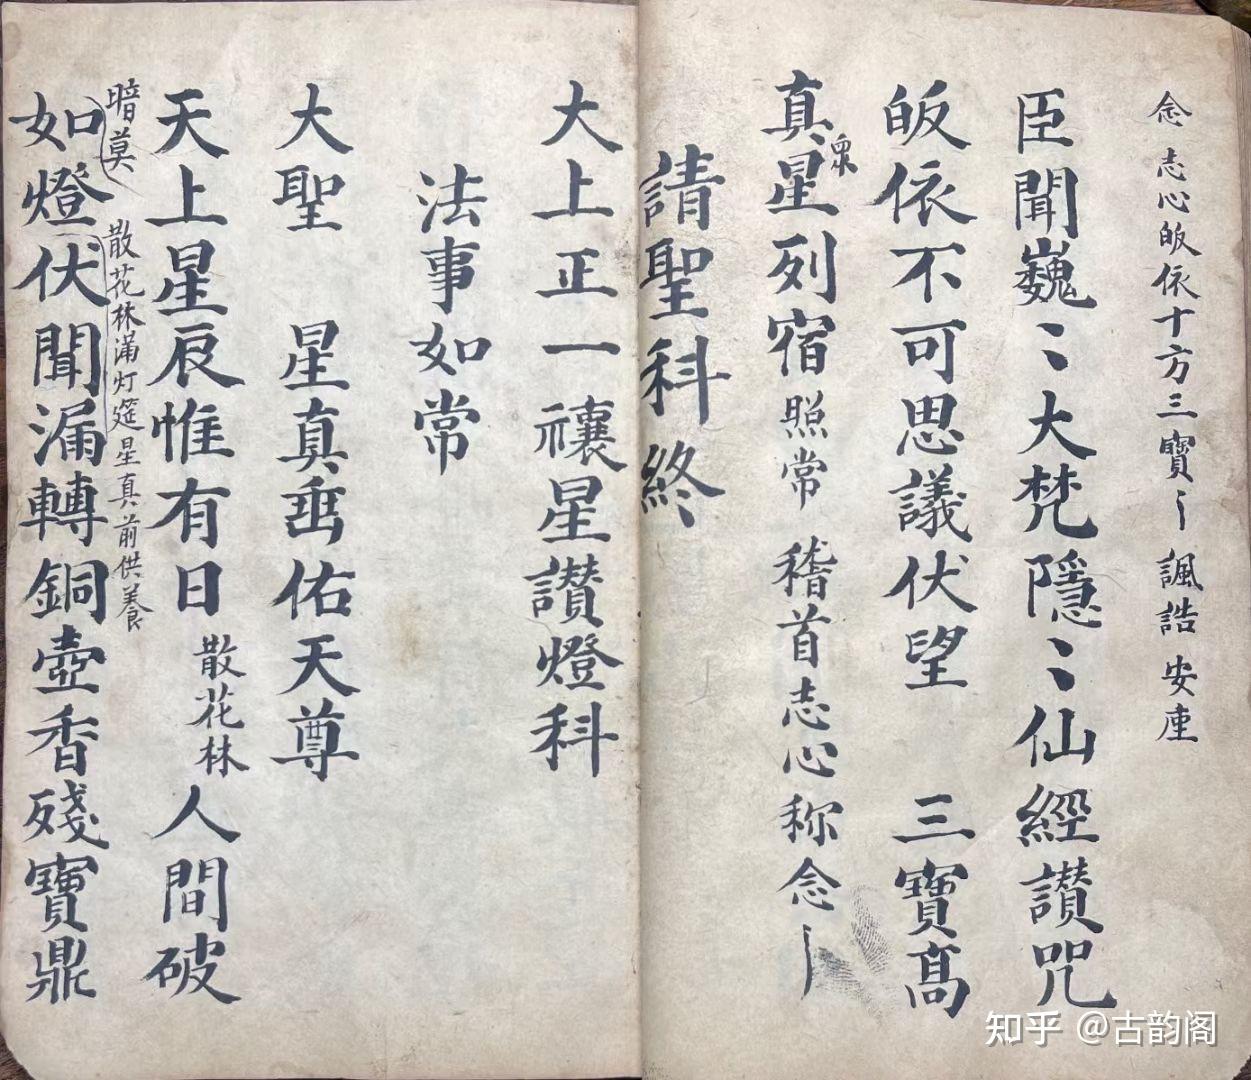 念 志心皈依十方三寶〻 諷誥 安座
臣聞巍〻大梵隱〻仙經讚咒
皈依不可思議伏望 三寶高
真衆星列宿照常 稽首志心称念〻
請聖科終
大上正一禳星讚燈科
法事如常
大聖 星真垂佑天尊
天上星辰惟有日散花林人間破
暗莫 散花林滿灯筵星真前供養
如燈伏聞漏轉銅壺香殘寶鼎
知乎 @古韵阁